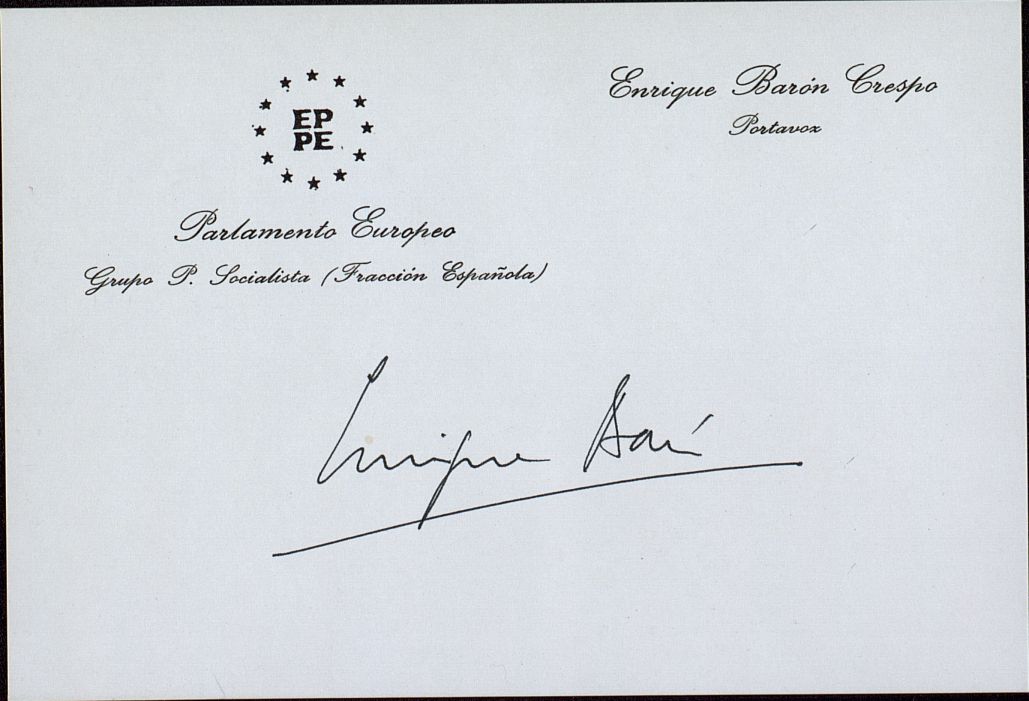 EP
PE
Enrique Barón Crespo
Portavoz
Parlamento Europeo
Grupo P. Socialista (Fracción Española)
Enrique Barón